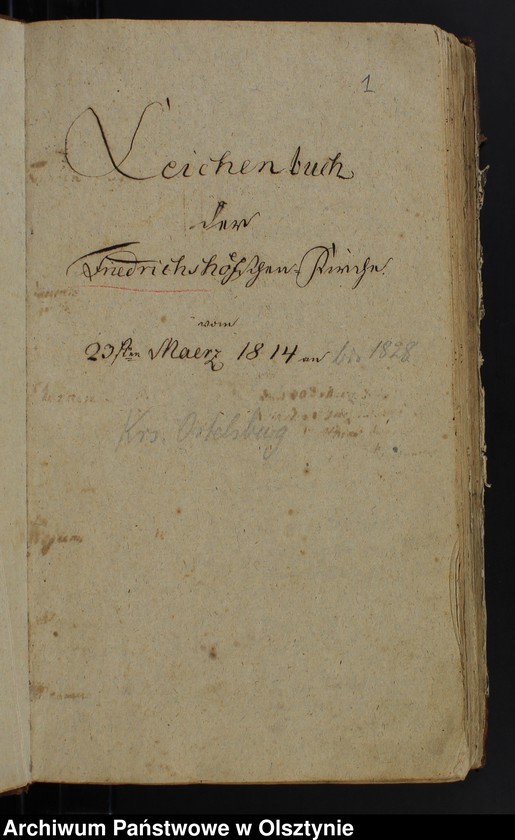 1
Leichenbuch
der
Friedrichshöfschen-Kirche
vom
23sten Maerz 1814 an bis 1828
Krs. Ortelsburg
Archiwum Państwowe w Olsztynie